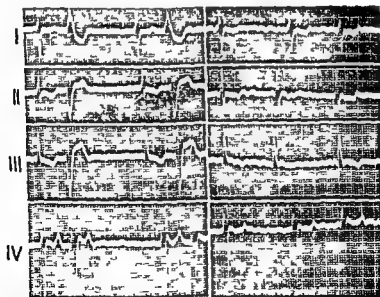 I
II
III
IV